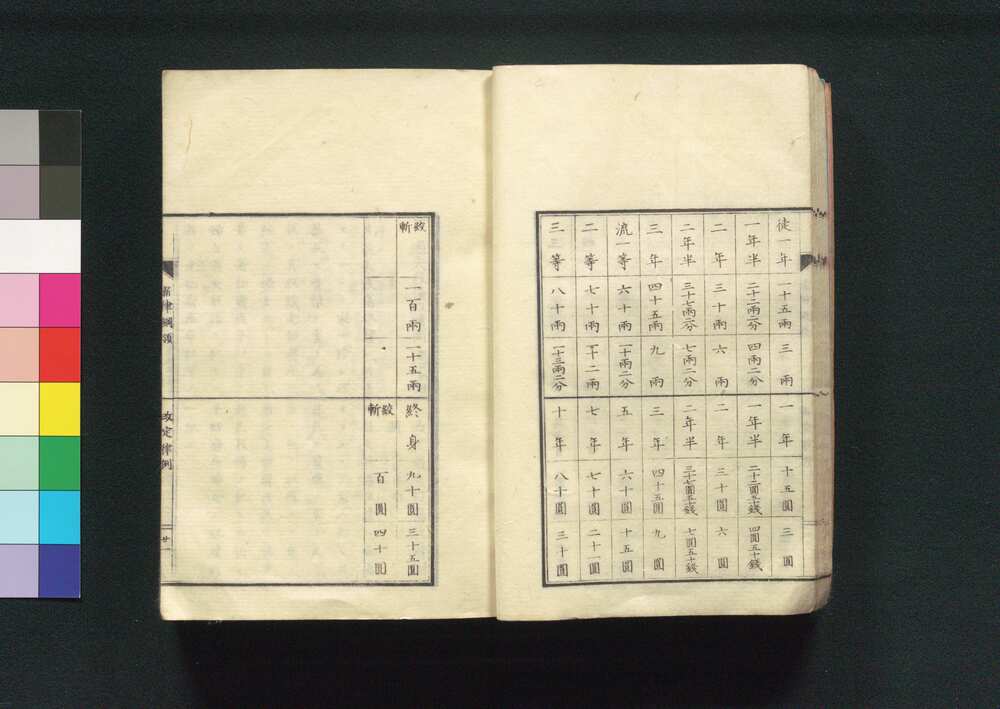 徒一年 一十五兩 三兩 一年 十五圓 三圓
一年半 二十二兩二分 四兩二分 一年半 二十二圓五十錢 四圓五十錢
二年 三十兩 六兩 二年 三十圓 六圓
二年半 三十七兩二分 七兩二分 二年半 三十七圓五十錢 七圓五十錢
三年 四十五兩 九兩 三年 四十五圓 九圓
流一等 六十兩 一十兩二分 五年 六十圓 十五圓
二等 七十兩 一十二兩 七年 七十圓 二十一圓
三等 八十兩 一十三兩二分 十年 八十圓 三十圓
絞斬 一百兩 一十五兩 終身 九十圓 三十五圓
絞斬 百圓 四十圓
新律綱領 改定律例 廿一